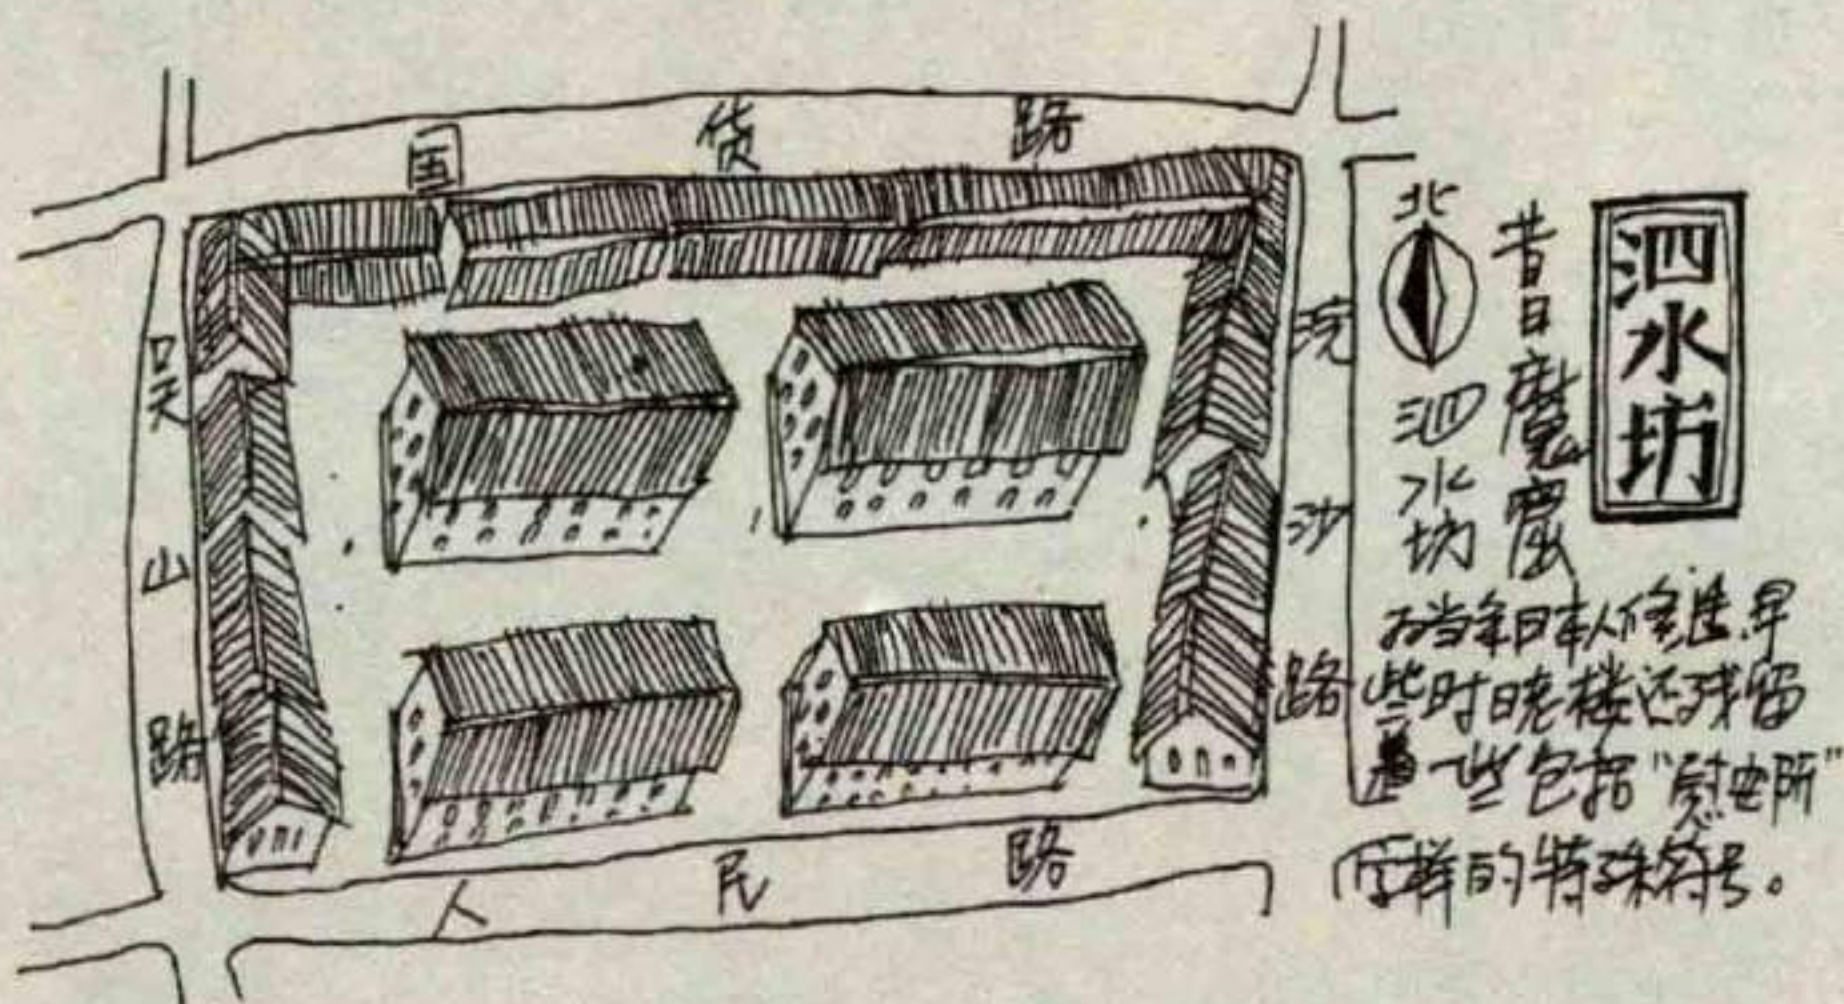 国货路
吴山路
浣沙路
人民路
北
泗水坊
昔日魔窟
泗水坊
为当年日本人修造.早
些时候楼还残留
着一些包括“慰安所”
字样的特殊符号。